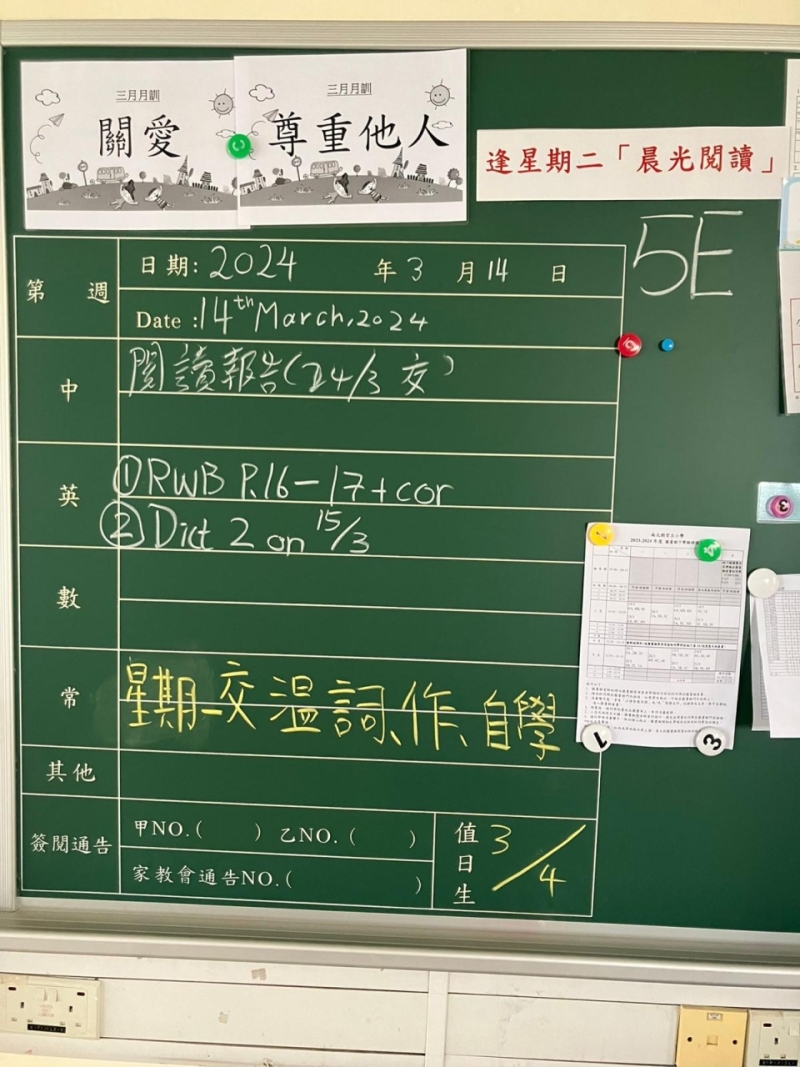 三月月訓
關愛
三月月訓
尊重他人
逢星期二「晨光閱讀」
5E
第 週
日期: 2024 年 3 月 14 日
Date : 14th March, 2024
中
閱讀報告(24/3 交)
英
① RWB P.16-17 + cor
② Dict 2 on 15/3
數
常
星期一交 溫詞、作、自學
其他
簽閱通告
甲NO.( ) 乙NO.( )
家教會通告NO.( )
值日生
3/4